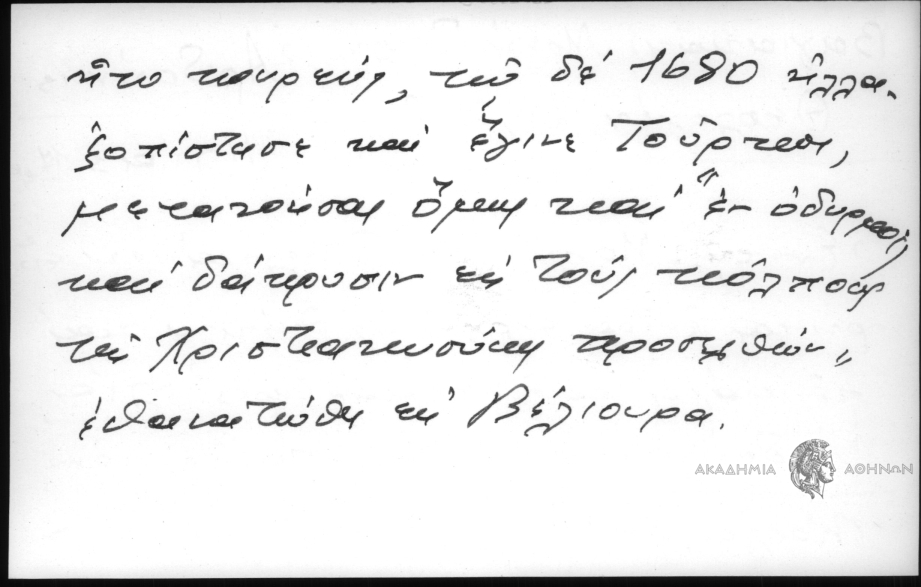 ἦτο κουρεύς, τῷ δέ 1680 ἠλλα-
ξοπίστησε καί ἔγινε Τοῦρκος,
μετανοήσας ὅμως καί "ἐν ὀδυρμοῖς
καί δάκρυσιν εἰς τούς κόλπους
τῆς Χριστιανωσύνης προσελθών"
ἐθανατώθη εἰς Βέλιουρα.
ΑΚΑΔΗΜΙΑ ΑΘΗΝΩΝ